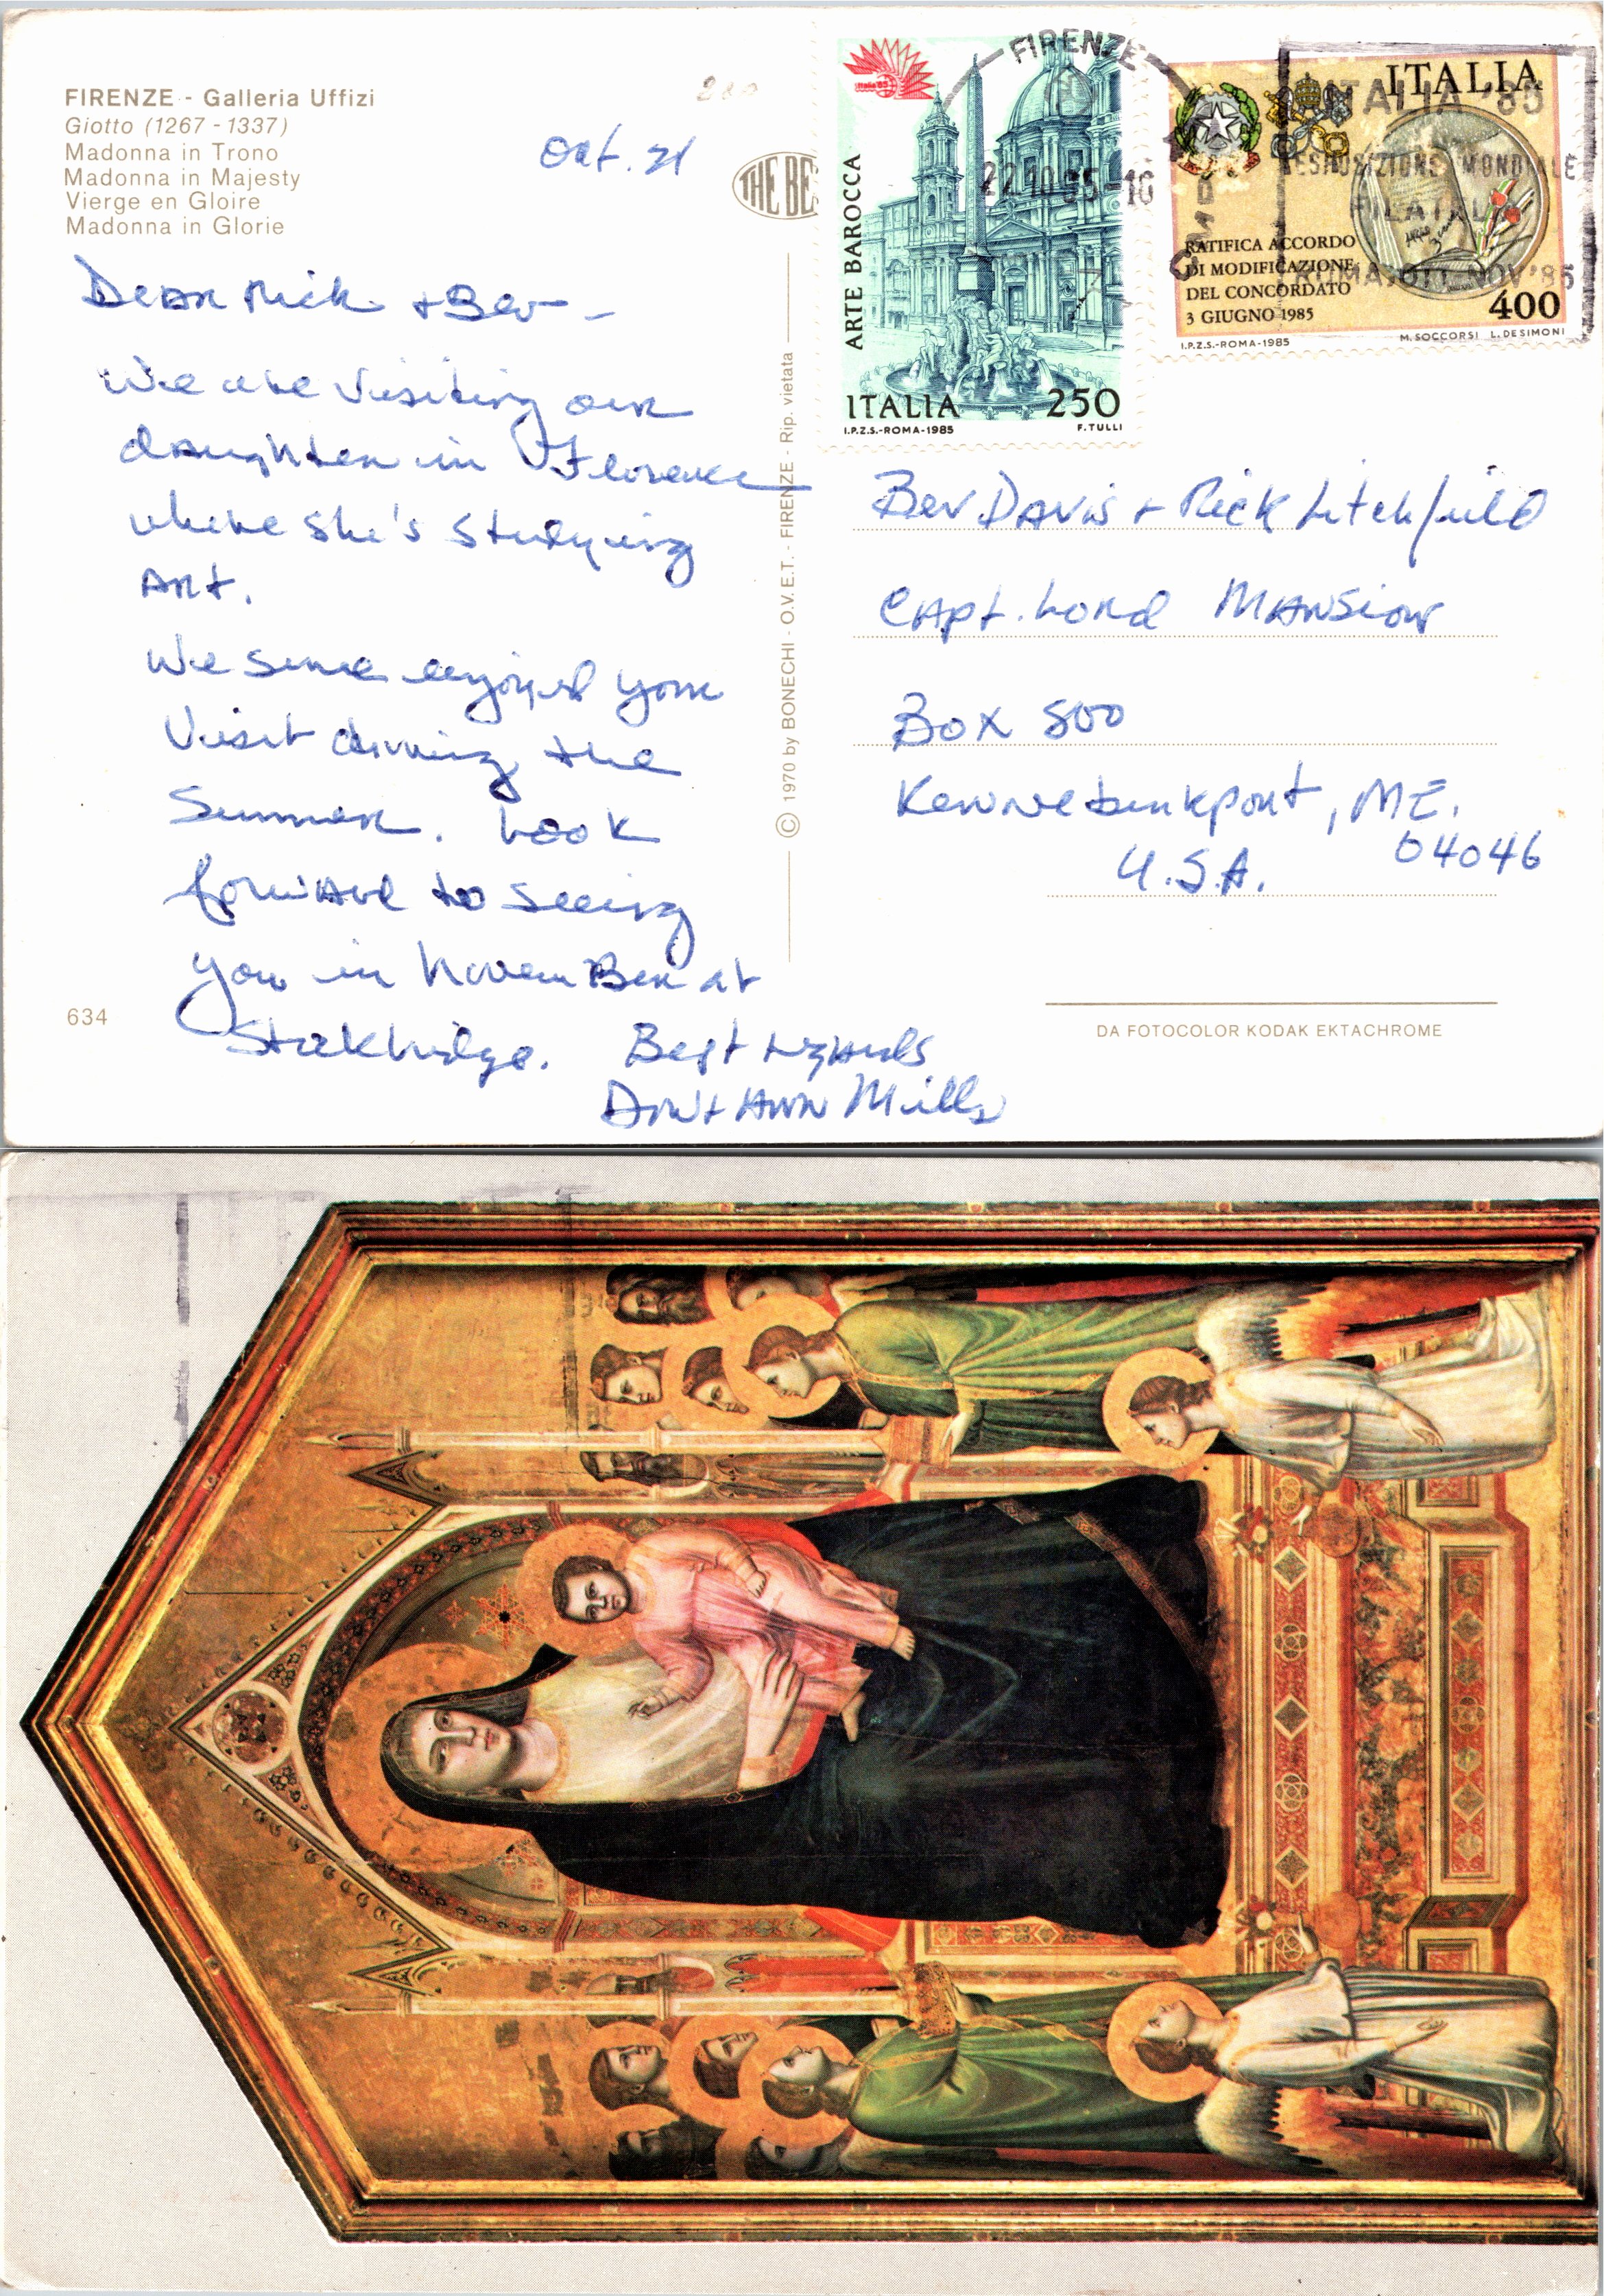 FIRENZE - Galleria Uffizi
Giotto (1267 - 1337)
Madonna in Trono
Madonna in Majesty
Vierge en Gloire
Madonna in Glorie
200
Oct. 21
THE BE
Dear Rick + Bev -
We are visiting our
daughter in Florence
where she's studying
Art.
We sure enjoyed your
visit during the
Summer. Look
forward to seeing
you in November at
Stockbridge. Best regards
Don + Ann Mills
634
© 1970 by BONECHI - O.V.E.T. - FIRENZE - Rip. vietata
Italia '85
ARTE BAROCCA
ITALIA 250
I.P.Z.S.-ROMA-1985 F. TULLI
FIRENZE
22 10 85-16
ITALIA
RATIFICA ACCORDO
DI MODIFICAZIONE
DEL CONCORDATO
3 GIUGNO 1985
400
I.P.Z.S.-ROMA-1985 M. SOCCORSI L. DESIMONI
ITALIA '85
ESPOSIZIONE MONDIALE
FILATELIA
ROMA NOV '85
Bev Davis + Rick Litchfield
Capt. Lord Mansion
Box 800
Kennebunkport, ME.
04046
U.S.A.
DA FOTOCOLOR KODAK EKTACHROME